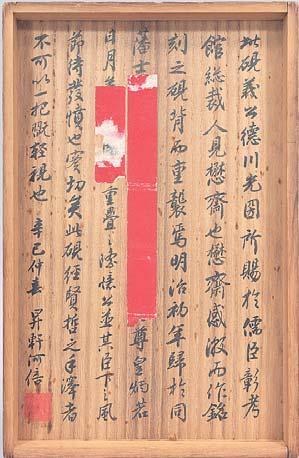 此硯義公德川光圀所賜於儒臣彰考
館総裁人見懋齋也懋齋感激而作銘
刻之硯背而重襲焉明治初年歸於同
藩士 尊皇炳若
日月 重疊 憶公並其臣下之風
節待發憤也實切矣此硯經賢哲之手澤者
不可以一把 輕視也 辛巳仲春 昇軒